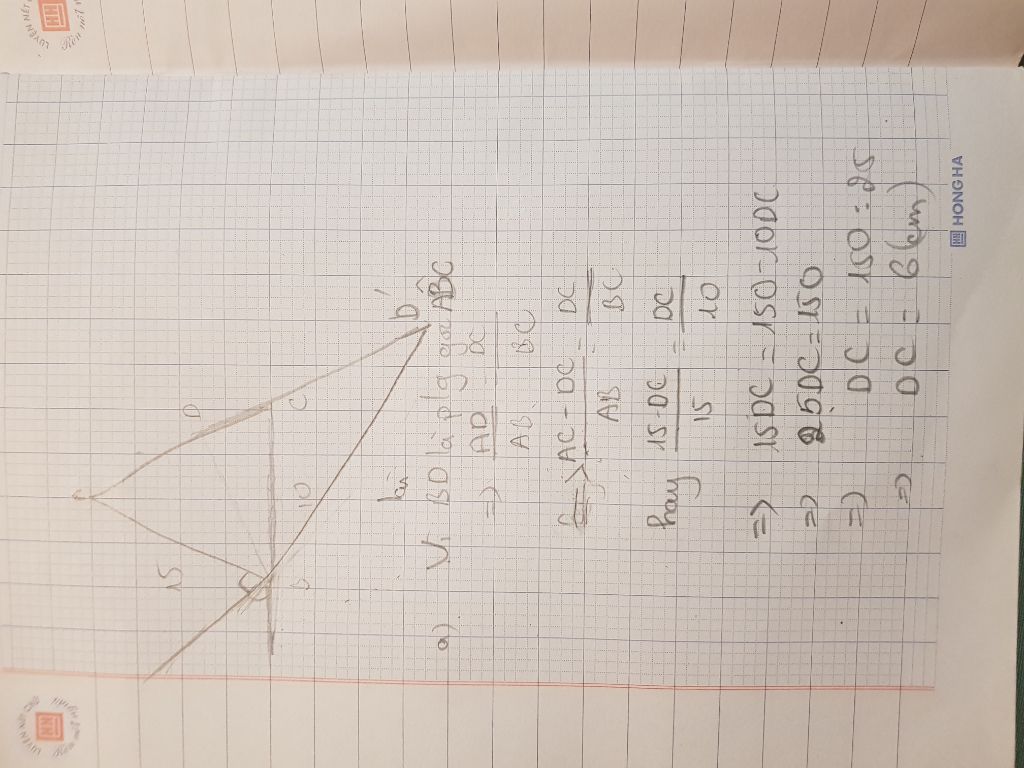 A
15
D
B
10
C
D'
bài
a) Vì BD là p/g góc ABC
=> AD/AB = DC/BC
=> AC - DC/AB = DC/BC
hay 15-DC/15 = DC/10
=> 15DC = 150-10DC
=> 25DC = 150
=> DC = 150:25
=> DC = 6(cm)
HONG HA